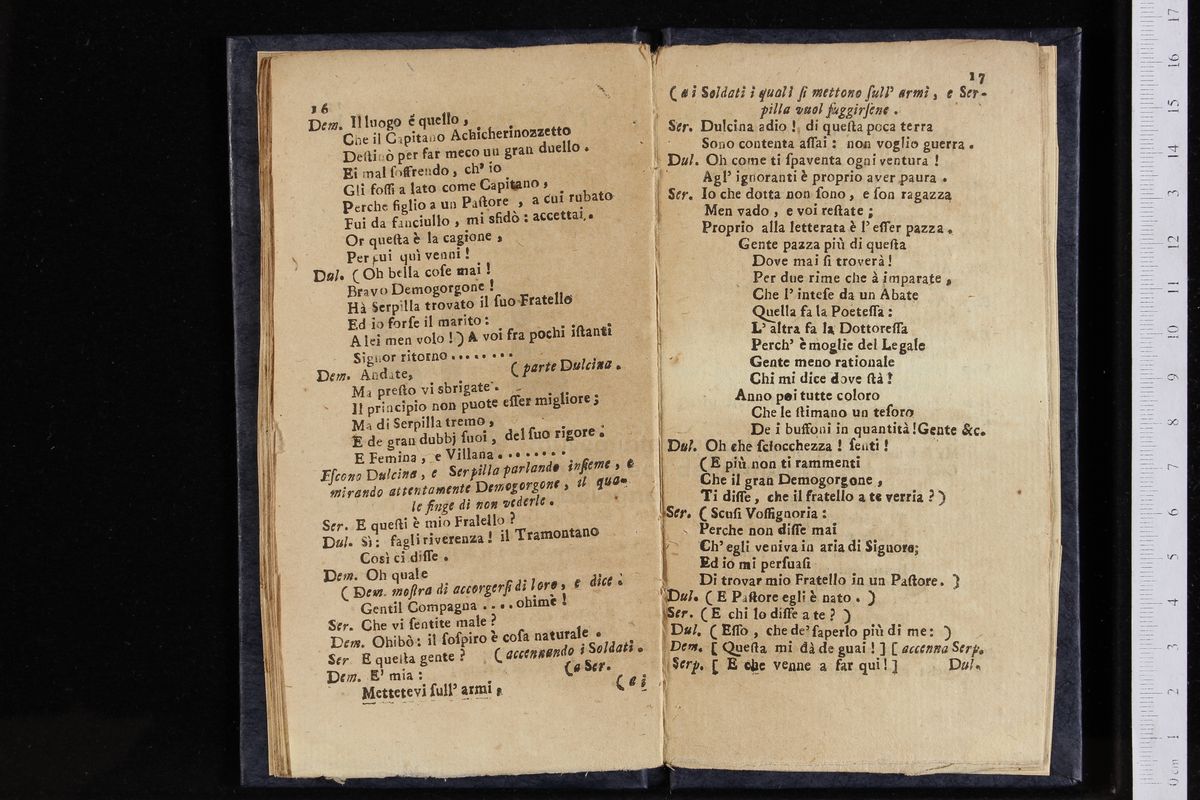 16
Dem. Il luogo é quello ,
Che il Capitano Achicherinozzetto
Deſtinò per far meco un gran duello .
Ei mal ſoffrendo , ch' io
Gli foſſi a lato come Capitano ,
Perche figlio a un Paſtore , a cui rubato
Fui da fanciullo , mi sfidò : accettai .
Or queſta è la cagione ,
Per cui quì venni !
Dul. ( Oh bella coſe mai !
Bravo Demogorgone !
Hà Serpilla trovato il ſuo Fratello
Ed io forſe il marito :
A lei men volo ! ) A voi fra pochi iſtanti
Signor ritorno . . . . . . . .
( parte Dulcina .
Dem. Andate,
Ma preſto vi sbrigate .
Il principio non puote eſſer migliore ;
Ma di Serpilla tremo ,
E de gran dubbj ſuoi , del ſuo rigore .
E Femina , e Villana . . . . . . . .
Eſcono Dulcina , e Serpilla parlando inſieme , e
mirando attentamente Demogorgone , il qua-
le finge di non vederle .
Ser. E queſti è mio Fralello ?
Dul. Sì : fagli riverenza ! il Tramontano
Così ci diſſe .
Dem. Oh quale
( Dem. moſtra di accorgerſi di loro , e dice :
Gentil Compagna . . . . ohimè !
Ser. Che vi ſentite male ?
Dem. Ohibò : il ſoſpiro è coſa naturale .
Ser E queſta gente ? ( accennando i Soldati .
Dem. E' mia : (a Ser.
Mettetevi ſull' armi ,
( a i
17
( a i Soldati i quali ſi mettono ſull' armi , e Ser-
pilla vuol fuggirſene .
Ser. Dulcina adio ! di queſta poca terra
Sono contenta aſſai : non voglio guerra .
Dul. Oh come ti ſpaventa ogni ventura !
Agl' ignoranti è proprio aver paura .
Ser. Io che dotta non ſono , e ſon ragazza
Men vado , e voi reſtate ;
Proprio alla letterata è l' eſſer pazza .
Gente pazza più di queſta
Dove mai ſi troverà !
Per due rime che à imparate ,
Che l' inteſe da un Abate
Quella fa la Poeteſſa :
L' altra fa la Dottoreſſa
Perch' è moglie del Legale
Gente meno rationale
Chi mi dice dove ſtà !
Anno poi tutte coloro
Che le ſtimano un teſoro
De i buffoni in quantità !Gente &c.
Dul. Oh che ſciocchezza ! ſenti !
( E più non ti rammenti
Che il gran Demogorgone ,
Ti diſſe , che il fratello a te verria ? )
Ser. ( Scuſi Voſſignoria :
Perche non diſſe mai
Ch' egli veniva in aria di Signore;
Ed io mi perſuaſi
Di trovar mio Fratello in un Paſtore. )
Dul. ( E Paſtore egli è nato . )
Ser. ( E chi lo diſſe a te ? )
Dul. ( Eſſo , che de' ſaperlo più di me : )
Dem. [ Queſta mi dà de guai ! ] [ accenna Serp.
Serp. [ E che venne a far qui ! ]
Dul.
0 cm 1 2 3 4 5 6 7 8 9 10 11 12 13 14 15 16 17